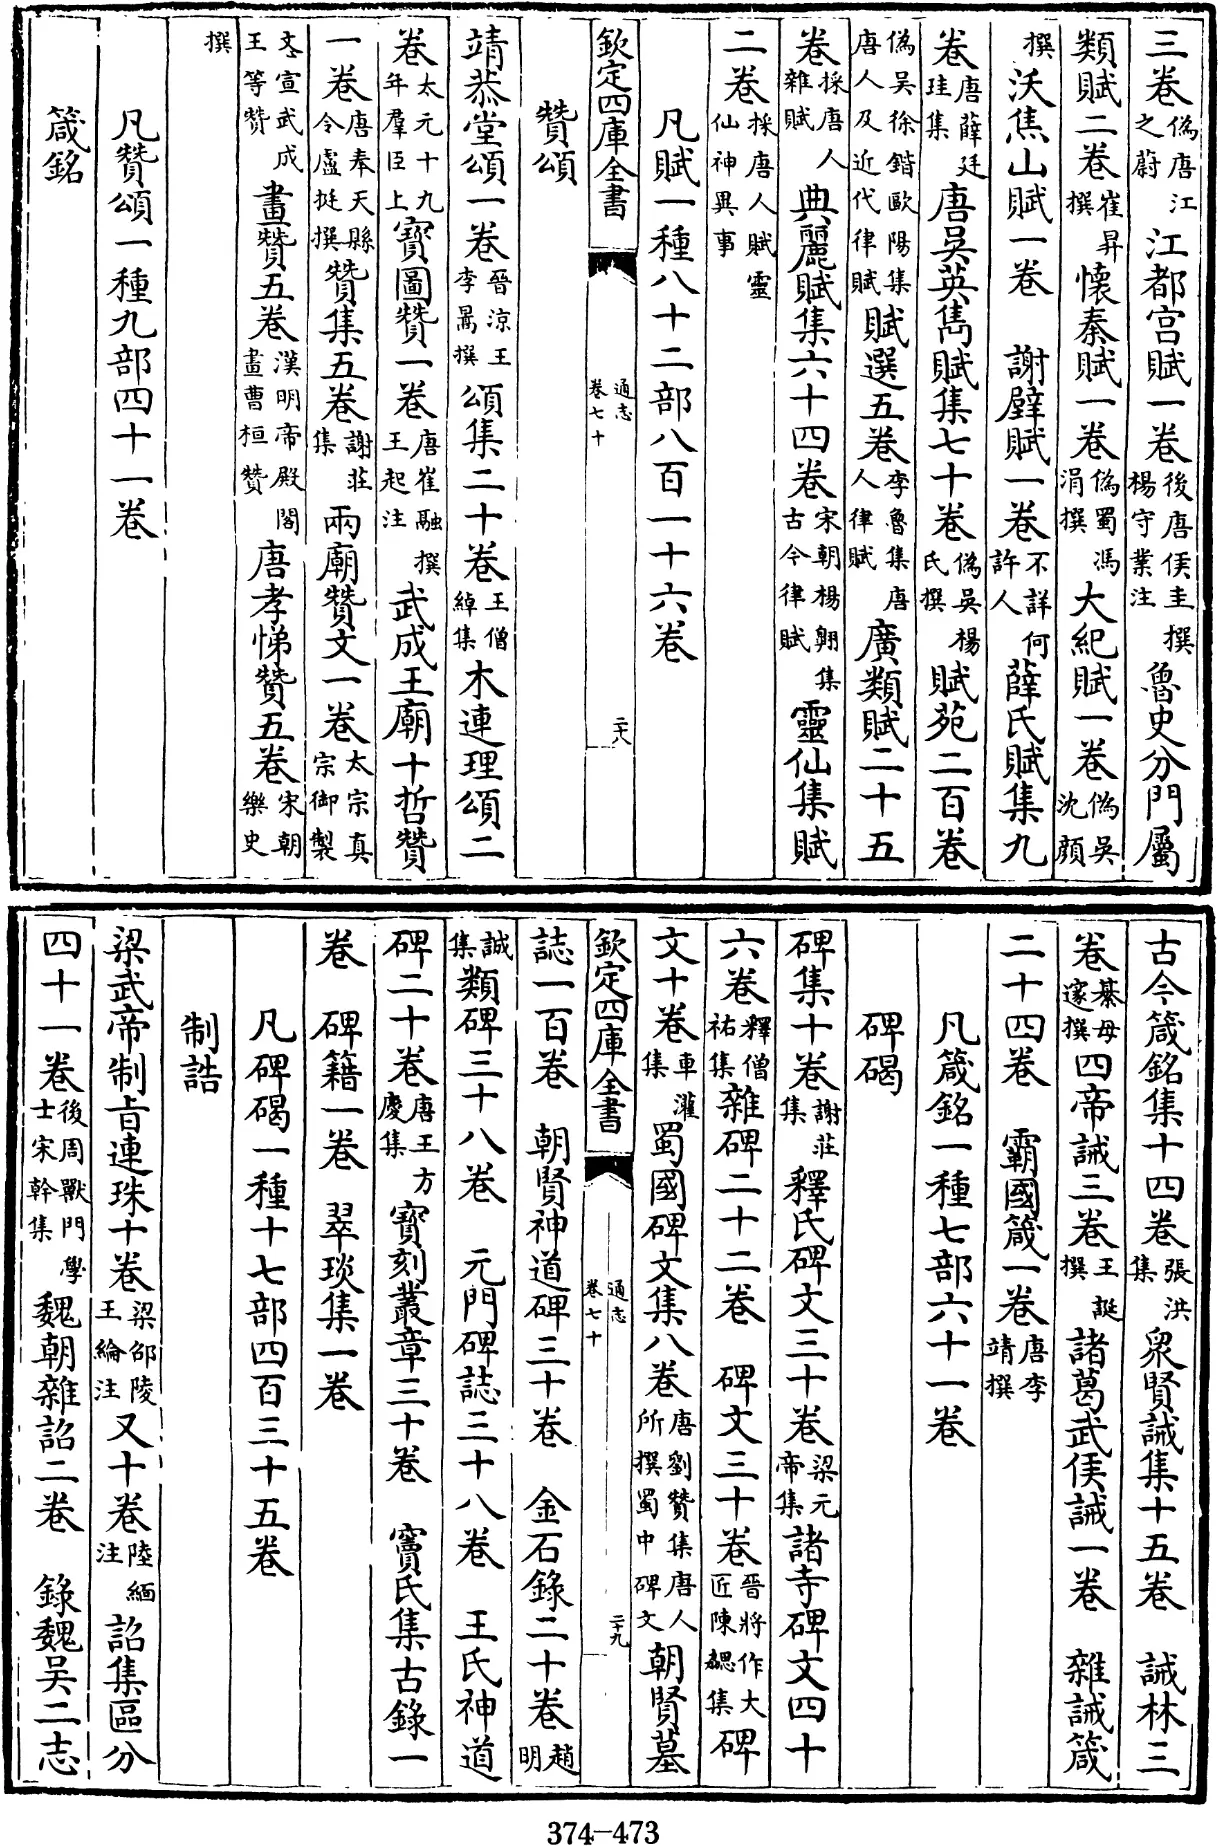 三卷偽唐江之蔚 江都宮賦一卷後唐侯圭撰楊守業注 魯史分門屬
類賦二卷崔昇撰 懐秦賦一卷偽蜀馮涓撰 大紀賦一卷偽吳沈顔
撰 沃焦山賦一卷 謝壁賦一卷不詳何許人 薛氏賦集九
卷唐薛廷珪集 唐吳英雋賦集七十卷偽吳楊氏撰 賦苑二百卷
偽吳徐鍇歐陽集唐人及近代律賦 賦選五卷李魯集唐人律賦 廣類賦二十五
卷採唐人雜賦 典麗賦集六十四卷宋朝楊翱集古今律賦 靈仙集賦
二卷採唐人賦靈仙神異事
凡賦一種八十二部八百一十六卷
欽定四庫全書 通志卷七十 二十八
贊頌
靖恭堂頌一卷晉涼王李暠撰 頌集二十卷王僧綽集 木連理頌二
卷太元十九年羣臣上 寶圖贊一卷唐崔融撰王起注 武成王廟十哲贊
一卷唐奉天縣令盧挺撰 贊集五卷謝莊集 兩廟贊文一卷太宗真宗御製
文宣武成王等贊 畫贊五卷漢明帝殿閣畫曹桓贊 唐孝悌贊五卷宋朝樂史
撰
凡贊頌一種九部四十一卷
箴銘
古今箴銘集十四卷張洪集 衆賢誡集十五卷 誡林三
卷綦母邃撰 四帝誡三卷王誕撰 諸葛武侯誡一卷 雜誡箴
二十四卷 霸國箴一卷唐李靖撰
凡箴銘一種七部六十一卷
碑碣
碑集十卷謝莊集 釋氏碑文三十卷梁元帝集 諸寺碑文四十
六卷釋僧祐集 雜碑二十二卷 碑文三十卷晉將作大匠陳勰集 碑
文十卷車灌集 蜀國碑文集八卷唐劉贊集唐人所撰蜀中碑文 朝賢墓
欽定四庫全書 通志卷七十 二十九
誌一百卷 朝賢神道碑三十卷 金石錄二十卷趙明
誠集 類碑三十八卷 元門碑誌三十八卷 王氏神道
碑二十卷唐王方慶集 寶刻叢章三十卷 竇氏集古錄一
卷 碑籍一卷 翠琰集一卷
凡碑碣一種十七部四百三十五卷
制誥
梁武帝制旨連珠十卷梁邵陵王綸注 又十卷陸緬注 詔集區分
四十一卷後周獸門學士宋幹集 魏朝雜詔二卷 錄魏吳二志
374-473